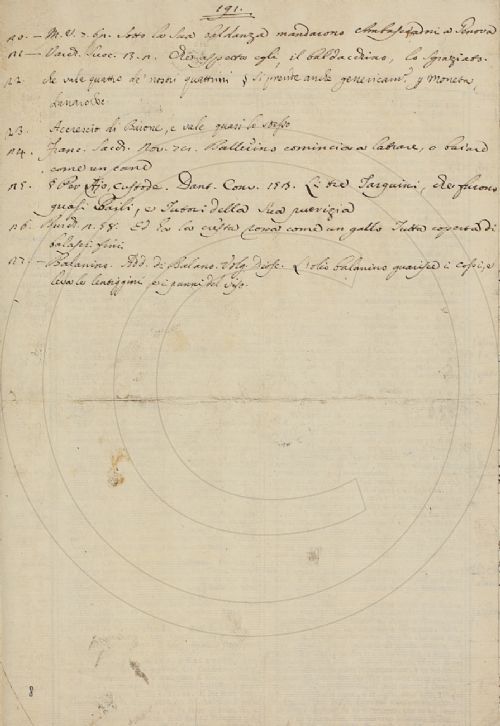 191.
n0. — M. V. 2. 61. Sotto la sua baldanza mandarono Ambasciadori a Genova
n1 — Varch. Suoc. 13. n. Ed aspetto egli, il baldacchino, lo sgraziato.
n2. che vale quattro de' nostri quattrini § Si prende anche genericam.e p Moneta,
danaro &c
n3. Accrescit. di Baione, e vale quasi lo stesso
n4. Franc. Sacch. Nov. 701. Ballerino comincia a latrare, o baiare
come un cane
n5. § Per Ajo, Custode. Dant. Conv. 153. Li tre Tarquini, che furono
quasi Baili, e Tutori della sua puerizia
n6. Burch. n. 58. Ed ho la cresta rossa come un gallo Tutta coperta di
balasci fini.
n7. — Balanino. Add. di Balano. Volg. Diosc. L'olio balanino guarisce i cossi, e
leva le lentiggini, e i panni del viso.
8